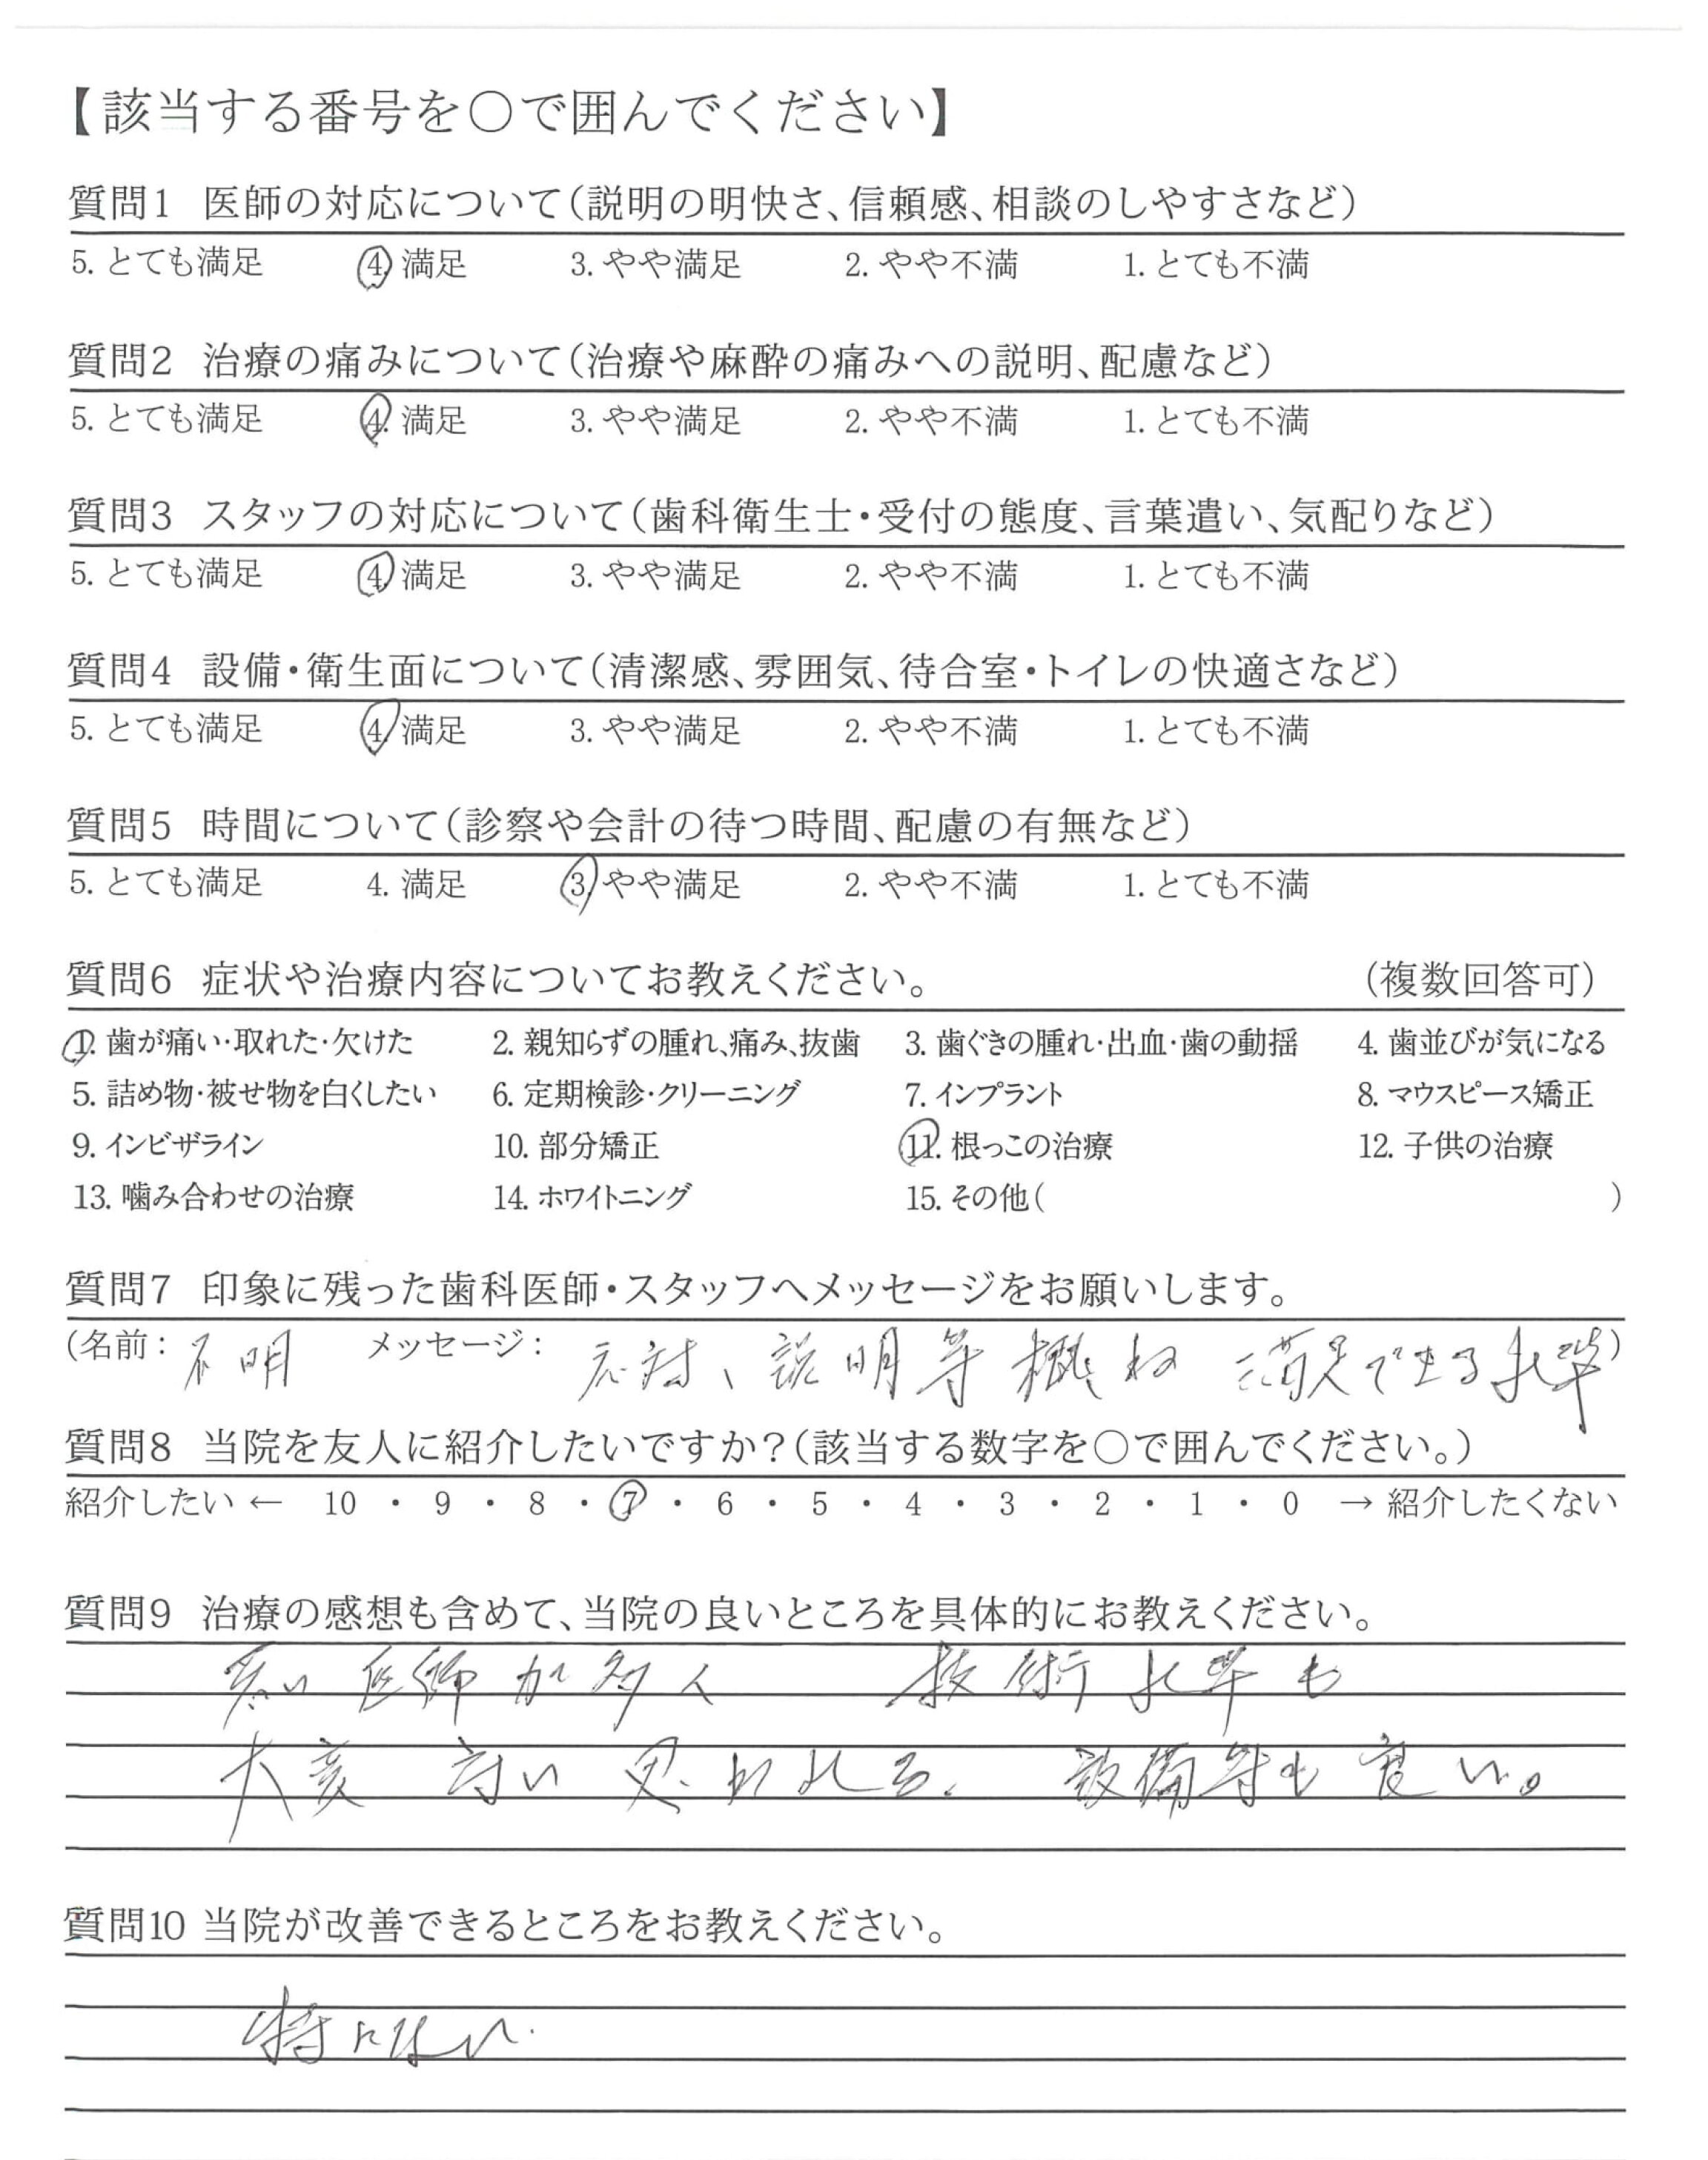 【該当する番号を○で囲んでください】
質問1 医師の対応について(説明の明快さ、信頼感、相談のしやすさなど)
5. とても満足 4. 満足 3. やや満足 2. やや不満 1. とても不満
質問2 治療の痛みについて(治療や麻酔の痛みへの説明、配慮など)
5. とても満足 4. 満足 3. やや満足 2. やや不満 1. とても不満
質問3 スタッフの対応について(歯科衛生士・受付の態度、言葉遣い、気配りなど)
5. とても満足 4. 満足 3. やや満足 2. やや不満 1. とても不満
質問4 設備・衛生面について(清潔感、雰囲気、待合室・トイレの快適さなど)
5. とても満足 4. 満足 3. やや満足 2. やや不満 1. とても不満
質問5 時間について(診察や会計の待つ時間、配慮の有無など)
5. とても満足 4. 満足 3. やや満足 2. やや不満 1. とても不満
質問6 症状や治療内容についてお教えください。 (複数回答可)
1. 歯が痛い・取れた・欠けた 2. 親知らずの腫れ、痛み、抜歯 3. 歯ぐきの腫れ・出血・歯の動揺 4. 歯並びが気になる
5. 詰め物・被せ物を白くしたい 6. 定期検診・クリーニング 7. インプラント 8. マウスピース矯正
9. インビザライン 10. 部分矯正 11. 根っこの治療 12. 子供の治療
13. 噛み合わせの治療 14. ホワイトニング 15. その他( )
質問7 印象に残った歯科医師・スタッフへメッセージをお願いします。
(名前: 不明 メッセージ: 応対、説明等概ね満足できる水準)
質問8 当院を友人に紹介したいですか?(該当する数字を○で囲んでください。)
紹介したい ← 10 ・ 9 ・ 8 ・ 7 ・ 6 ・ 5 ・ 4 ・ 3 ・ 2 ・ 1 ・ 0 → 紹介したくない
質問9 治療の感想も含めて、当院の良いところを具体的にお教えください。
若い医師が多く 技術水準も
大変高い思われる。設備等も良い。
質問10 当院が改善できるところをお教えください。
特にない.